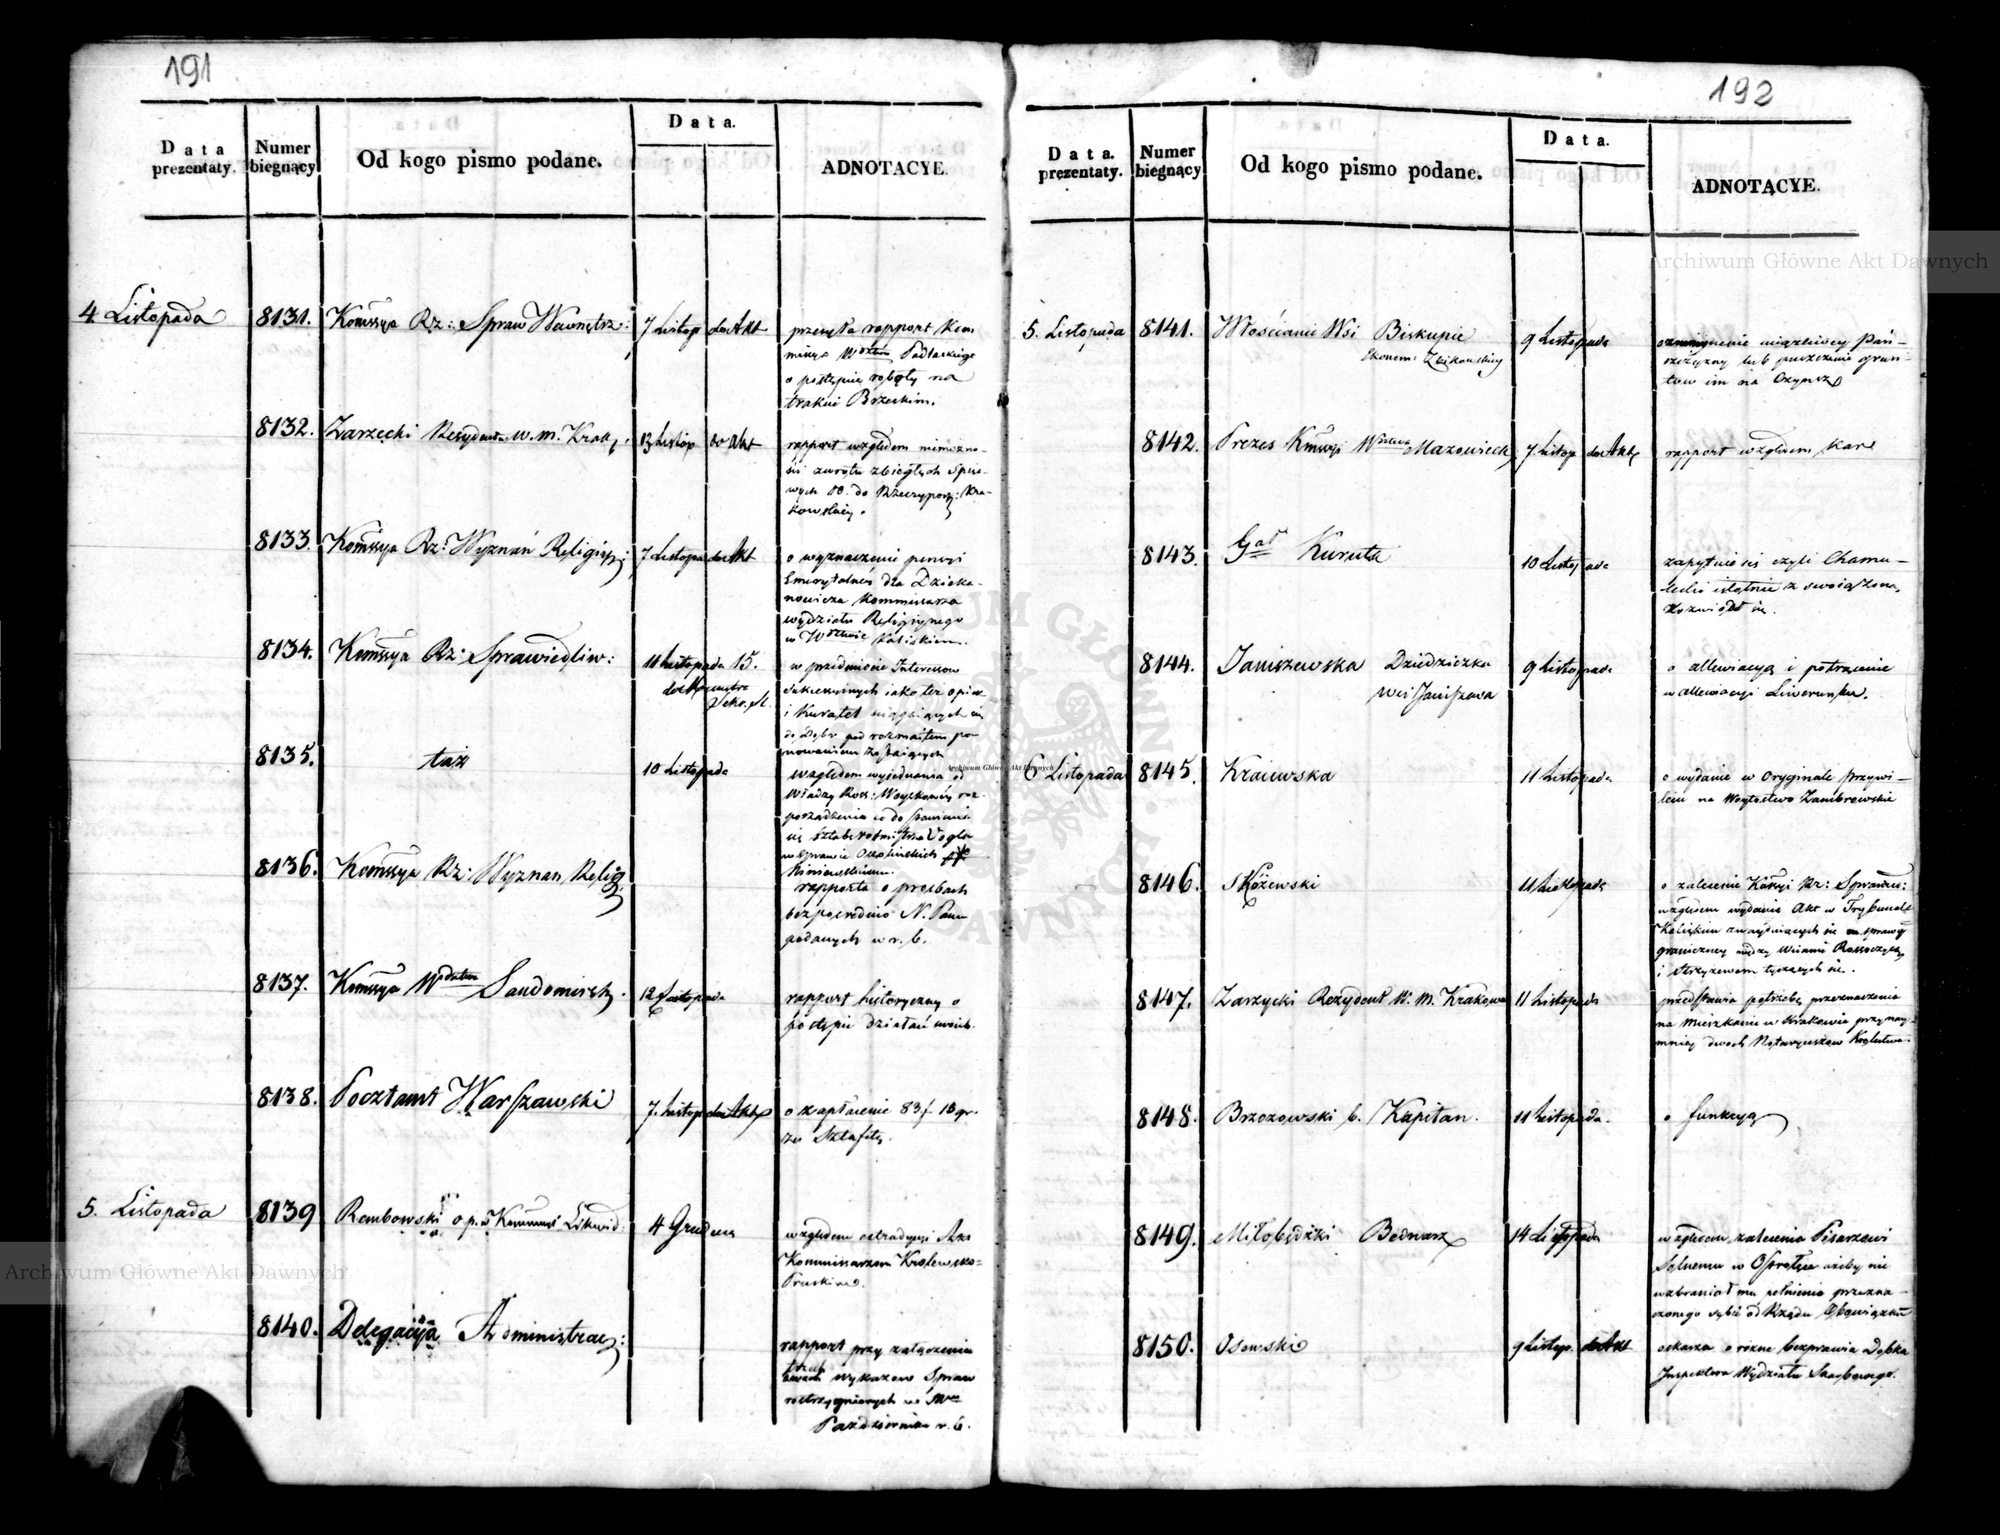 191
Data prezentaty.
Numer biegnący
Od kogo pismo podane.
Data.
ADNOTACYE.
4 Listopada
8131.
Kommssya Rz: Spraw Wewnętrz:
7 Listop do Akt
przesyła rapport Kom
missyi Wodztwa Podlaskiego
o postępie roboty na
trakcie Brzeskim.
8132.
Zarzecki Rezydent w. m. Krak
13 Listop do Akt
rapport względem niemożno-
ści zwrotu zbiegłych
do Rzeczyposp: Kra-
kowskiey.
8133.
Kommssya Rz: Wyznań Religiy:
7 Listopa do Akt
o wyznaczenie pensyi
Emerytalney dla Dzieka-
nowicza Kommissarza
wydziału Religiynego
w Wodztwie Kaliskiem.
8134.
Kommssya Rz: Sprawiedliw:
11 Listopada 15.
w przedmiocie Interessow
iako też opiek
i Kuratel
do Dóbr pod rozmaitem po-
nowaniem
8135.
taż
10 Listopada
względem wyiednania od
Władzy Ross: Woyskowey roz-
porządzenia co do stawienia
się Sztabsrotmistrza Vogla
w Sprawie Ossolińskich
8136.
Kommssya Rz: Wyznan Relig
rapporta o prośbach
bezpośrednio N. Panu
podanych w r. b.
8137.
Kommssya Wodztwa Sandomirsk.
12 Listopada
rapport historyczny o
postępie działań swoich.
8138.
Pocztamt Warszawski
7. Listop do Akt
o zapłacenie 83 f 10 gr.
za Sztafetę.
5. Listopada
8139
Rembowski o. p. w Kommssyi Likwid:
4 Grudnia
względem extradycyi Akt
Kommissarzom Krolewsko-
Pruskim.
8140.
Delegacija Administrac:
rapport przy załączeniu
trzech wykazow Spraw
roztrzygnionych w Mcu
Październiku r. b.
192
Data. prezentaty.
Numer biegnący
Od kogo pismo podane.
Data.
ADNOTACYE.
5. Listopada
8141.
Włościanie Wsi Biskupie
Ekonomii Zbikowskiey
9 Listopada
o zmnieyszenie uciążliwey Pań-
szczyzny lub puszczenie grun-
tow im na Czynsz
8142.
Prezes Kmssyi Wodztwa Mazowieck
7 Listop do Akt
rapport względem kar
8143.
Gał Kuruta
10 Listopada
zapytuie się czyli
istotnie z swoią żoną
rozwiódł się.
8144.
Janiszewska Dziedziczka
wsi Janiszewa
9 Listopada
o allewiacyą i potrącenie
w allewiacyi Liwerunku.
6 Listopada
8145.
Kraiewska
11 Listopada
o wydanie w oryginale przywi-
leiu na Woytostwo Zambrowskie
8146.
Skożewski
11 Listopada
o zalecenie Kommssyi Rz: Sprawied:
względem wydania Akt w Trybunale
Kaliskim znayduiących się w sprawie
graniczney między Wsiami
i Strzyżewem tyczących się.
8147.
Zarzycki Rezydent W. M. Krakowa
11 Listopada
przedstawia potrzebę przeznaczenia
na mieszkanie w Krakowie przynay-
mniey dwóch Notaryuszow Krolestwa.
8148.
Brzozowski b. Kapitan.
11 Listopada.
o funkcyą
8149.
Miłobędzki Bednarz
14 Listopada
względem zalecenia Pisarzowi
Solnemu w Ostrołęce ażeby nie
wzbraniał mu pełnienia przezna-
czonego sobie od Rządu Obowiązku
8150.
Osowski
9 Listop. do Akt
oskarża o rożne bezprawia Dębka
Inspektora Wydziału Skarbowego.
Archiwum Główne Akt Dawnych
Archiwum Główne Akt Dawnych
Archiwum Główne Akt Dawnych